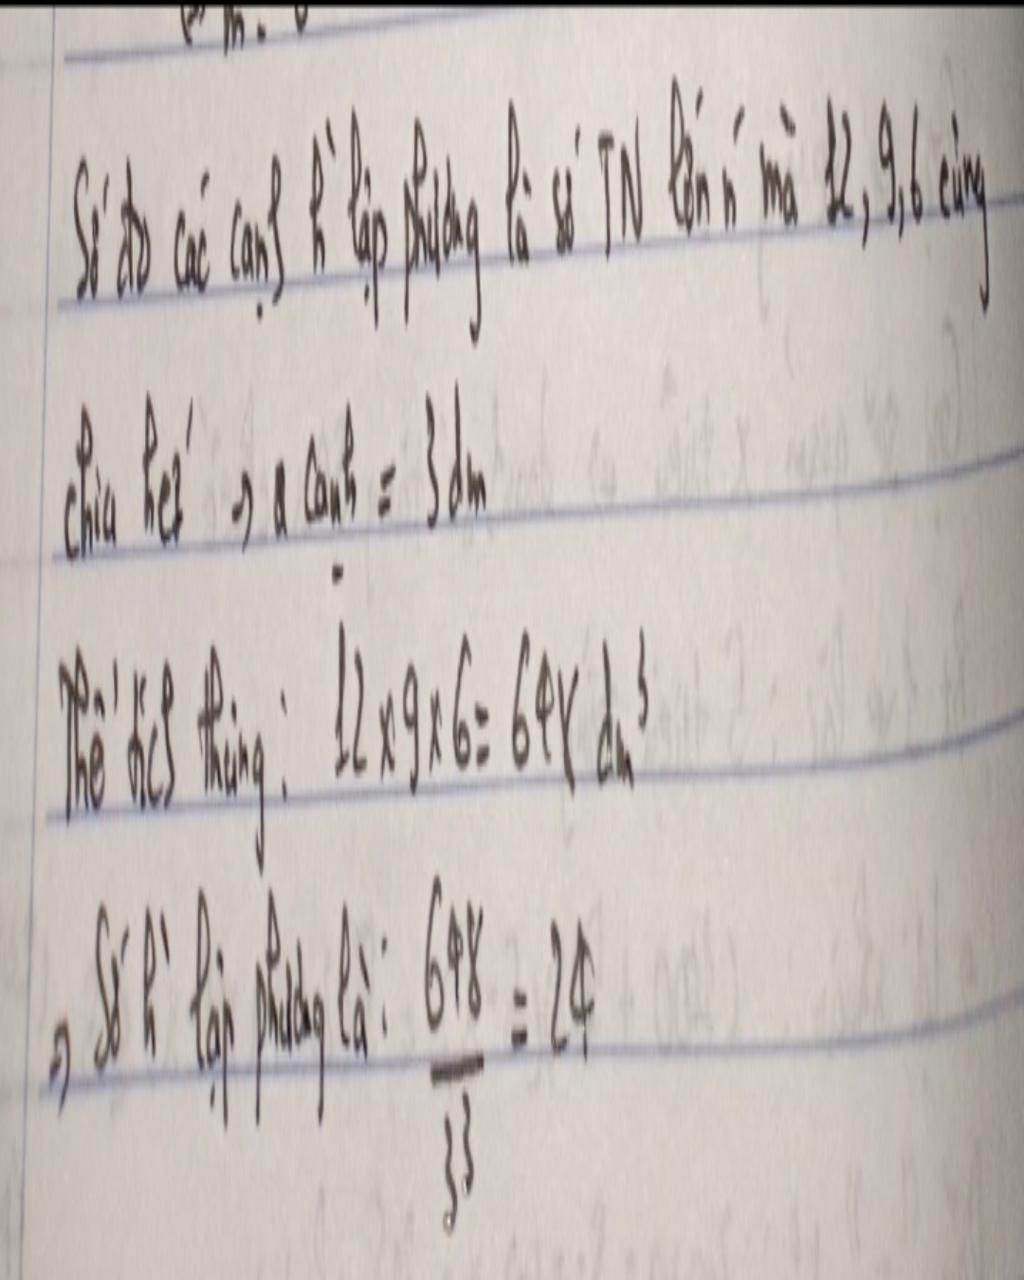 Số đo các cạnh h' lập phương là số TN lớn n' mà 12, 9, 6 cùng
chia hết => a cạnh = 3dm
Thể tích thùng: 12 x 9 x 6 = 648 dm³
=> Số h' lập phương là: 648/3³ = 24